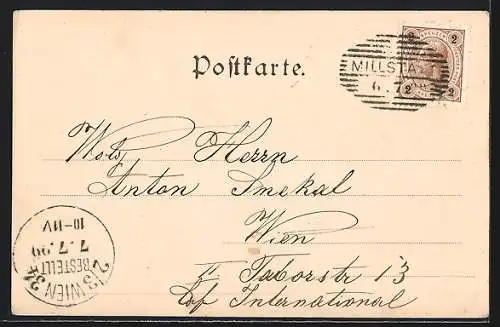 Postkarte.
MILLSTA
6 7
2 2
2 2
Wohl Herrn
Anton Smekal
Wien
II Taborstr 13
Caf International
2/3 WIEN
BESTELLT
7.7.99
10-11V